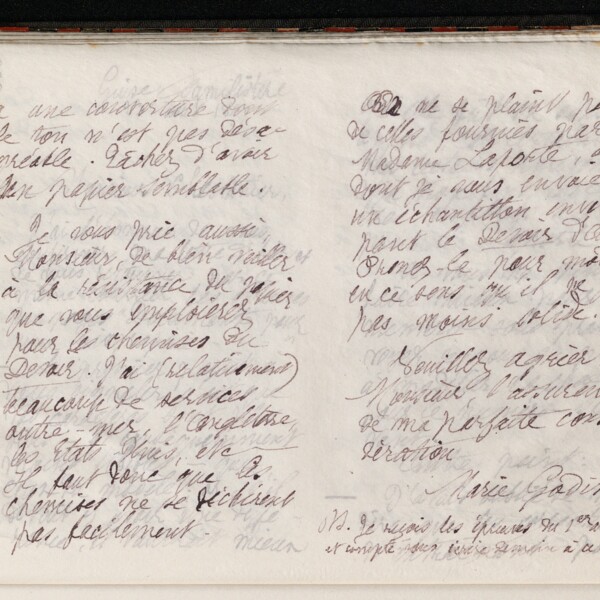 a une couverture dont
le ton n'est pas désa-
gréable. Tâchez d'avoir
un papier semblable.
Je vous prie aussi
Monsieur, de bien veiller
à la résistance du papier
que vous emploierez
pour les chemises du
Devoir. J'ai (relativement)
beaucoup de services
outre-mer, l'Angleterre,
les Etats Unis, etc
Il faut donc que les
chemises ne se déchirent
pas facilement.
On ne se plaint pa
de celles fournies par
Madame Laporte,
dont je vous envoie
un échantillon enve
pant le Devoir d'O
Prenez-le pour mo
en ce sens qu'il ne
pas moins solide.
Veuillez agréer
Monsieur, l'assuran
de ma parfaite con
dération
Marie Godin
NB. Je reçois les épreuves du 1er
et compte vous écrire demain à ce